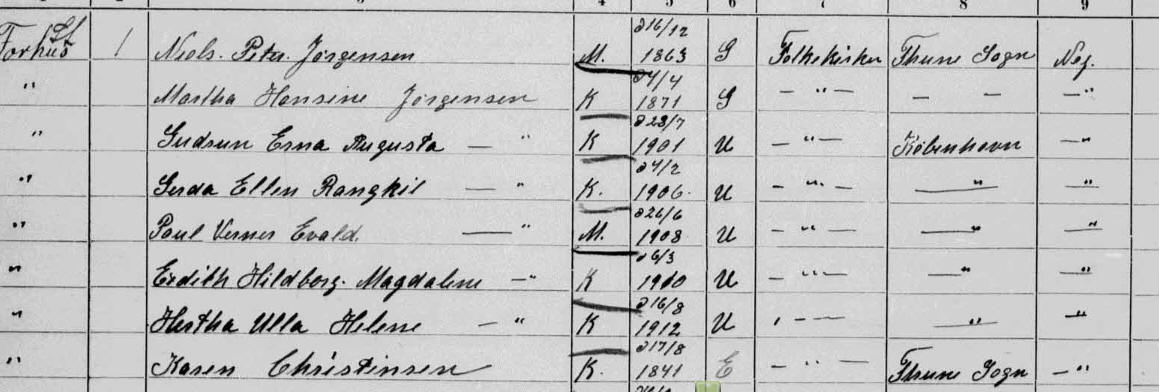 4 5 6 7 8 9
Forhus St 1 Niels. Peter. Jörgensen M. d 16/12 1863 G Folkekirken Thune Sogn Nej.
" Martha Hansine Jörgensen K d 4/4 1871 G — " — — — — "
" Gudrun Erna Augusta — " K d 23/7 1901 U — " — Köbenhavn — "
" Gerda Ellen Rangkil — " K. d 4/2 1906. U — " — — " — "
" Paul Verner Evald. — " M. d 26/6 1908 U — " — — " — "
" Erdith Hildborg. Magdalene — " K d 6/3 1910 U — " — — " — "
" Hertha Ulla Helene — " K d 16/8 1912 U " — — — " — "
" Karen Christinsen K. d 17/8 1841 E — " — Thune Sogn — "